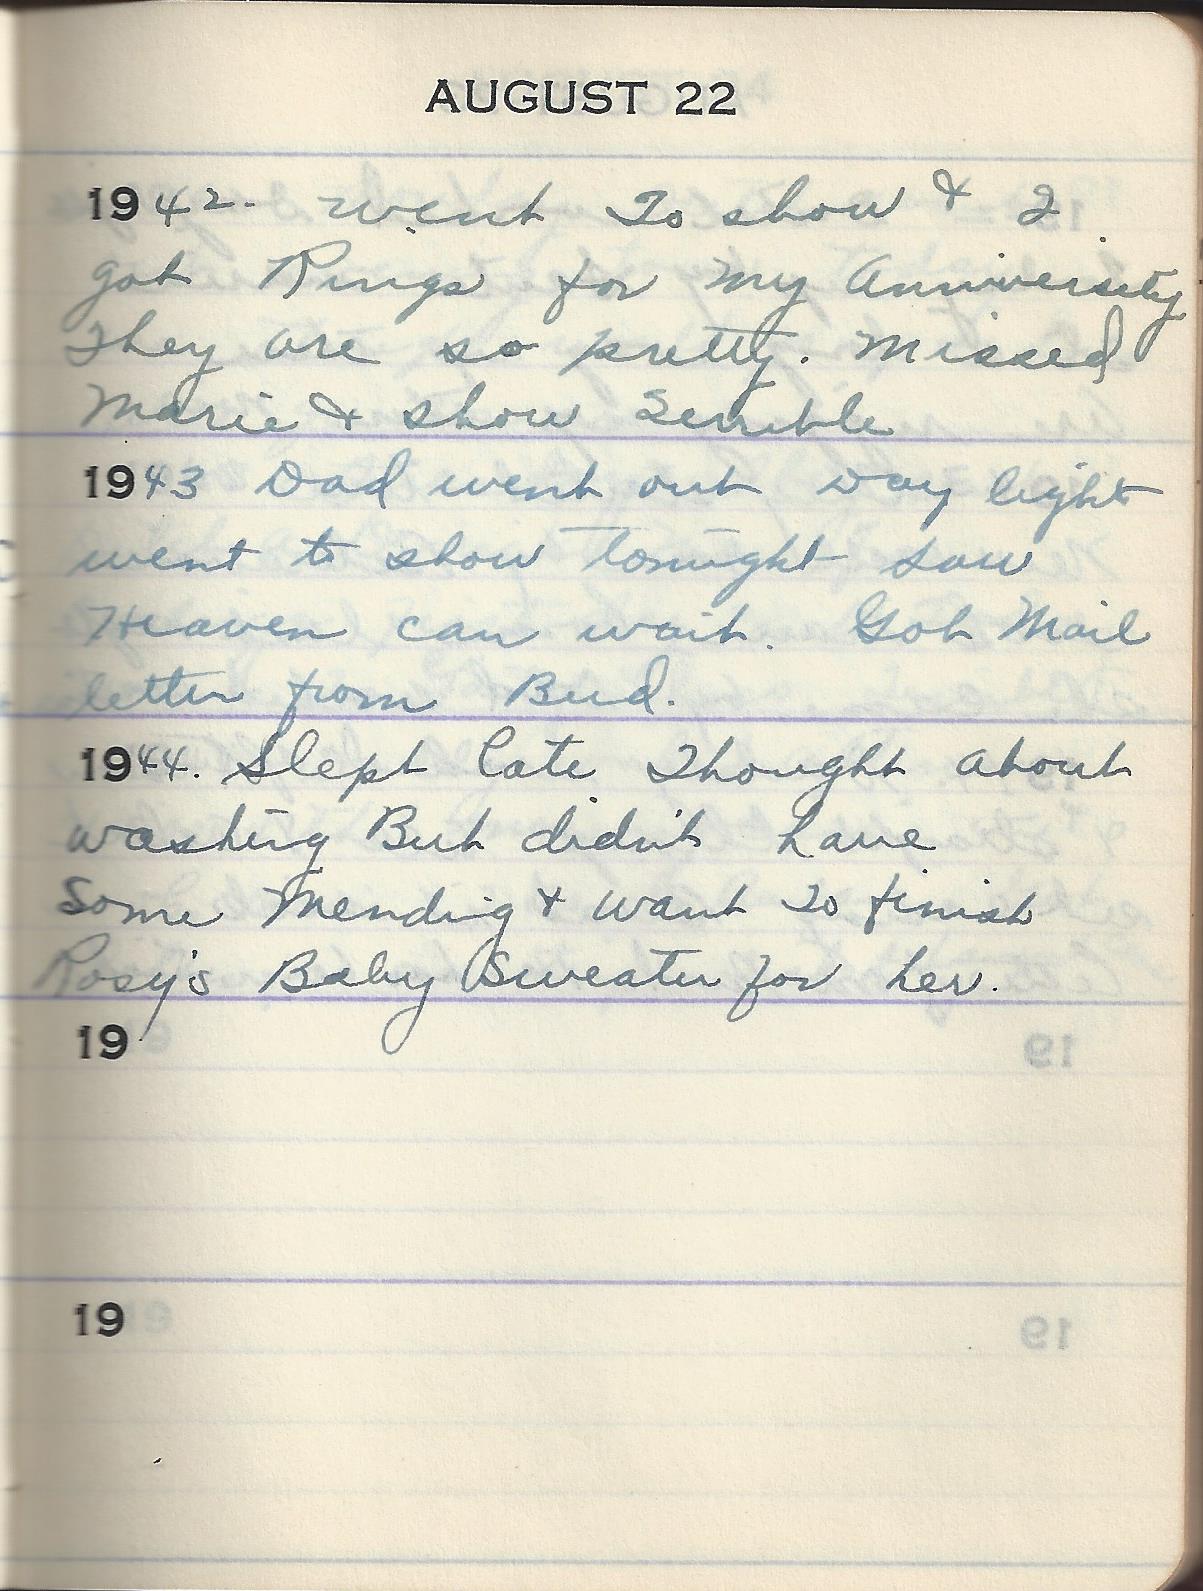 AUGUST 22
1942. Went To show & I
got Rings for my Anniversity
They are so pretty. Missed
Marie & show Terrible
1943 Dad went out day light
went to show tonight saw
Heaven can wait. Got Mail
letter from Bud.
1944. Slept late Thought about
washing But didn't have
Some Mending & want To finish
Rosy's Baby Sweater for her.
19
19